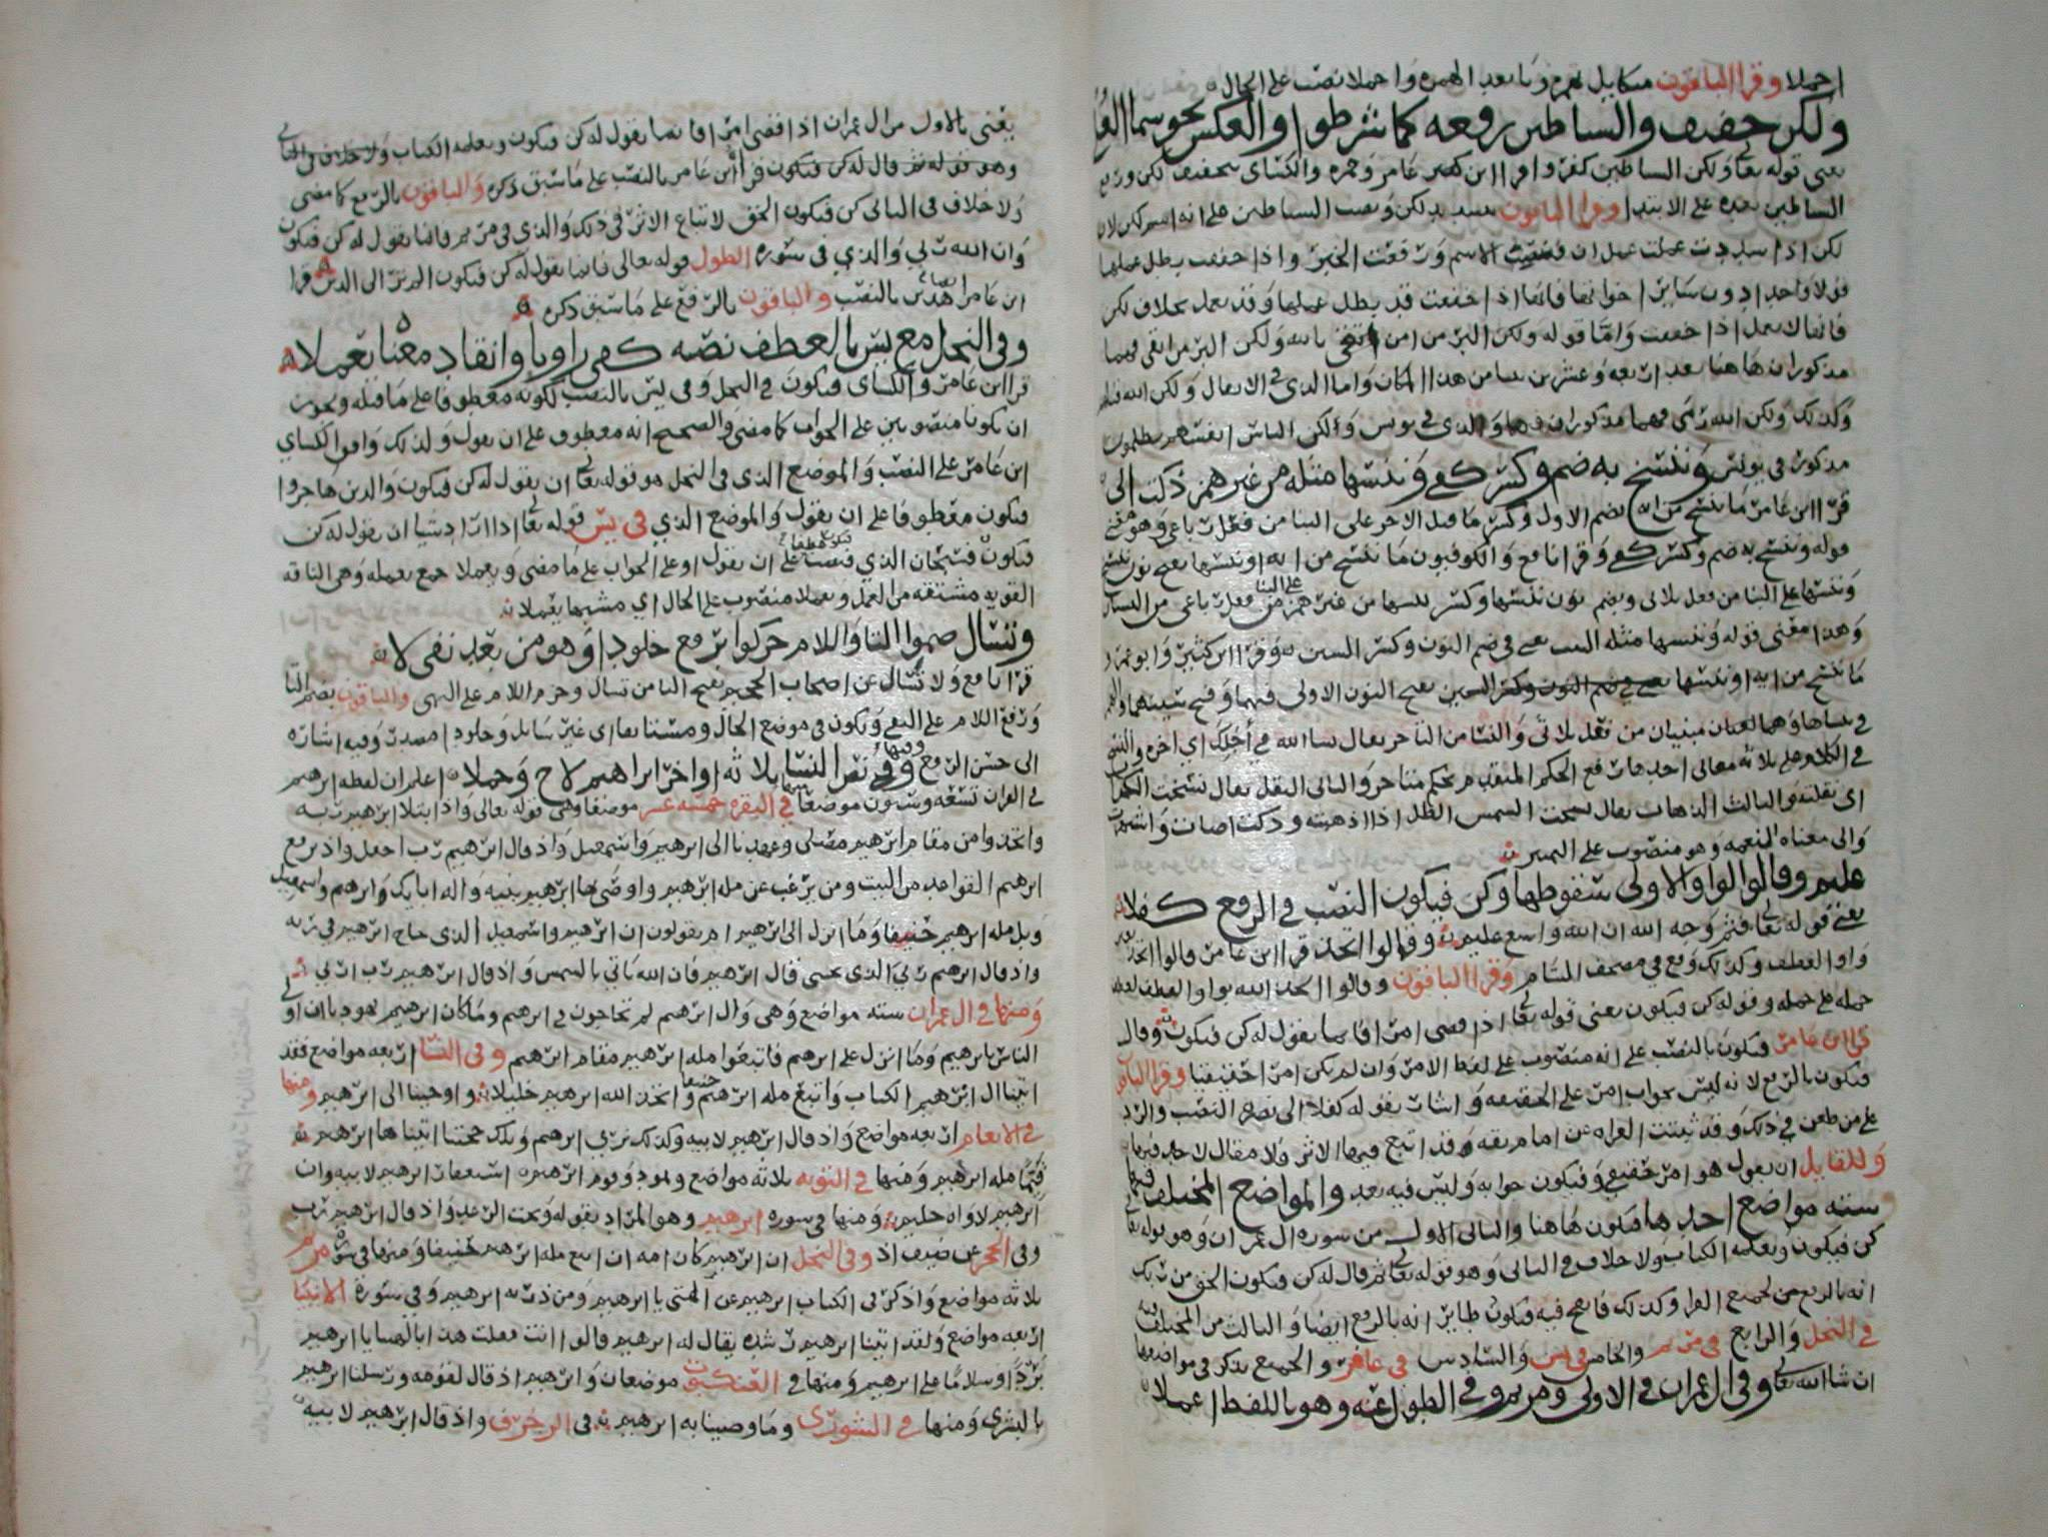 احملا وقرا الباقون ميكاييل بهمزه وبا بعد الهمزه واحملا نصب على الحال
ولكن خفيف والشياطين رفعه كما شرطوا والعكس نحو سما العلا
يعنى قوله تعالى ولكن الشياطين كفروا قرا ابن عامر وحمزه والكساى بتخفيف لكن ورفع
الشياطين بعده على الابتدا وقرا الباقون بتشديد لكن ونصب الشياطين على انه اسم لكن لان
لكن اذا شددت عملت عمل ان فنصبت الاسم ورفعت الخبر واذا خففت بطل عملها
قولا واحدا دون ساير اخواتها فانها اذا خففت قد بطل عملها وقد تعمل بخلاف لكن
فانها لا تعمل اذا خففت واما قوله ولكن البر من امن بالله ولكن البر من اتقى فهما
مذكوران هاهنا بعد اربعه وعشرين بيتا من هذا المكان واما الذي في الانفال ولكن الله قتلهم
وكذلك ولكن الله رمى فهما مذكوران فيها والذي في يونس ولكن الناس انفسهم يظلمون
مذكور في يونس وننسخ به ضم وكسر كفى وننسها مثله من غير همز ذكت الى
قرا ابن عامر ما ننسخ من ايه بضم الاول وكسر ما قبل الاخر على البنا من فعل رباعى وهو معنى
قوله وننسخ به ضم وكسر كفى وقرا نافع والكوفيون ما ننسخ من ايه او ننسها
وننسها على البنا من فعل ثلاثى وبضم نون ننسها وكسر سينها من غير همز على البنا من فعل رباعى من النسيان
وهذا معنى قوله وننسها مثله يعنى في ضم النون وكسر السين وقرا ابن كثير وابو عمرو
ما ننسخ من ايه او ننسها بفتح النون الاولى فيهما وفتح سينهما والهمز
وهما لغتان مبنيان من فعل ثلاثى والنسا من التاخر يقال نسا الله في اجلك اي اخره والنسخ
في الكلام على ثلاثه معانى احدها رفع الحكم المتقدم بحكم متاخر والثانى النقل يقال نسخت الكتاب
اى نقلته والثالث الذهاب يقال نسخت الشمس الظل اذا اذهبته وذكت اضات وانتشرت
والى معناه النعمه وهو منصوب على التمييز
عليم وقالوا الواو الاولى سقوطها وكن فيكون النصب في الرفع كفلا
يعنى قوله تعالى فثم وجه الله ان الله واسع عليم وقالوا اتخذ قرا ابن عامر قالوا اتخذ بغير
واو العطف وكذلك وقع في مصحف الشام وقرا الباقون وقالوا اتخذ الله بواو العطف لعطف
جمله على جمله وقوله كن فيكون يعنى قوله تعالى اذا قضى امرا فانما يقول له كن فيكون وقال
قرا ابن عامر فيكون بالنصب على انه منصوب على لفظ الامر وان لم يكن امرا حقيقيا وقرا الباقون
فيكون بالرفع لانه ليس بجواب امر على الحقيقه واشار بقوله كفلا الى نصره النصب والرد
على من طعن في ذلك وقد ثبتت القراه عن امام ثقه وقد اتبع فيها الاثر فلا مقال لاحد فيها
وللقايل ان يقول هو امر حقيقى وفيكون جوابه وليس فيه بعد والمواضع المختلف فيها
سته مواضع احدها فيكون هاهنا والثانى الاول من سورة ال عمران وهو قوله تعالى
كن فيكون ويعلمه الكتاب ولا خلاف في الثانى وهو قوله تعالى ثم قال له كن فيكون الحق من ربك
انه بالرفع من لجميع القرا وكذلك فانفخ فيه فيكون طايرا انه بالرفع ايضا والثالث من المختلف فيه
في النحل والرابع في مريم والخامس في يس والسادس في غافر والجميع يذكر في مواضعها
ان شا الله تعالى وفي ال عمران في الاولى ومريم وفي الطول عنه وهو باللفظ اعملا
يعنى بالاول من ال عمران اذا قضى امرا فانما يقول له كن فيكون ويعلمه الكتاب ولا خلاف في الثانى
وهو قوله ثم قال له كن فيكون قرا ابن عامر بالنصب على ما سبق ذكره والباقون بالرفع كما مضى
ولا خلاف في الثانى كن فيكون الحق لاتباع الاثر في ذلك والذي في مريم فانما يقول له كن فيكون
وان الله ربي والذي في سورة الطول قوله تعالى فانما يقول له كن فيكون الم تر الى الذين قرا
ابن عامر ايضا بالنصب والباقون بالرفع على ما سبق ذكره
وفي النحل مع يس بالعطف نصبه كفى راويا وانقاد معناه يعملا
قرا ابن عامر والكساى فيكون في النحل وفي يس بالنصب لكونه معطوفا على ما قبله ويجوز
ان يكونا منصوبين على الجواب كما مضى والصحيح انه معطوف على ان يقول ولذلك وافق الكساي
ابن عامر على النصب والموضع الذي في النحل هو قوله تعالى ان يقول له كن فيكون والذين هاجروا
فيكون معطوفا على ان يقول والموضع الذي في يس قوله تعالى اذا اراد شيا ان يقول له كن
فيكون فسبحان الذي فيكون عطفا على ان يقول او على الجواب على ما مضى ويعملا جمع يعمله وهى الناقه
القويه مشتقه من العمل ويعملا منصوب على الحال اي مشبها يعملا
وتسال ضموا التا واللام حركوا برفع خلودا وهو من بعد نفى لا
قرا نافع ولا تسال عن اصحاب الجحيم بفتح التا من تسال وجزم اللام على النهى والباقون بضم التا
ورفع اللام على النفى ويكون في موضع الحال ومستانفا اى غير سايل وخلودا مصدر وفيه اشاره
الى حسن الرفع وفيها وفي نص النسا ثلاثه اواخر ابراهيم لاح وجملا اعلم ان لفظه ابرهيم
في القران تسعه وستون موضعا منها في البقره خمسه عشر موضعا وهى قوله تعالى واذ ابتلا ابرهيم ربه
واتخذوا من مقام ابرهيم مصلى وعهدنا الى ابرهيم واسمعيل واذ قال ابرهيم رب اجعل واذ يرفع
ابرهيم القواعد من البيت ومن يرغب عن مله ابرهيم واوصى بها ابرهيم بنيه واله ابايك وابرهيم واسمعيل
وبل مله ابرهيم حنيفا وما انزل الى ابرهيم ام يقولون ان ابرهيم واسمعيل الذى حاج ابرهيم في ربه
واذ قال ابرهيم ربي الذي يحيى قال ابرهيم فان الله ياتي بالشمس واذ قال ابرهيم رب ارني
ومنها في ال عمران سته مواضع وهى وال ابرهيم لم تحاجون في ابرهيم وما كان ابرهيم يهوديا ان اولى
الناس بابرهيم وما انزل على ابرهيم فاتبعوا مله ابرهيم مقام ابرهيم وفي النسا اربعه مواضع فقد
اتينا ال ابرهيم الكتاب واتبع مله ابرهيم حنيفا واتخذ الله ابرهيم خليلا واوحينا الى ابرهيم ومنها
في الانعام اربعه مواضع واذ قال ابرهيم لابيه وكذلك نري ابرهيم وتلك حجتنا اتيناها ابرهيم
قيما مله ابرهيم ومنها في التوبه ثلاثه مواضع وثمود وقوم ابرهيم استغفار ابرهيم لابيه وان
ابرهيم لاواه حليم ومنها في سوره ابرهيم وهو المراد بقوله وتحت الرعد واذ قال ابرهيم رب
وفى الحجر عن ضيف اذ وفى النحل ان ابرهيم كان امه ان اتبع مله ابرهيم حنيفا ومنها في سوره مريم
ثلاثه مواضع واذكر في الكتاب ابرهيم عن الهتى يا ابرهيم ومن ذريه ابرهيم وفي سورة الانبيا
اربعه مواضع ولقد اتينا ابرهيم رشده يقال له ابرهيم قالوا اانت فعلت هذا بالهتنا يا ابرهيم
بردا وسلاما على ابرهيم ومنها في العنكبوت موضعان وابرهيم اذ قال لقومه ورسلنا ابرهيم
بالبشرى ومنها في الشورى وما وصينا به ابرهيم في الزخرف واذ قال ابرهيم لابيه